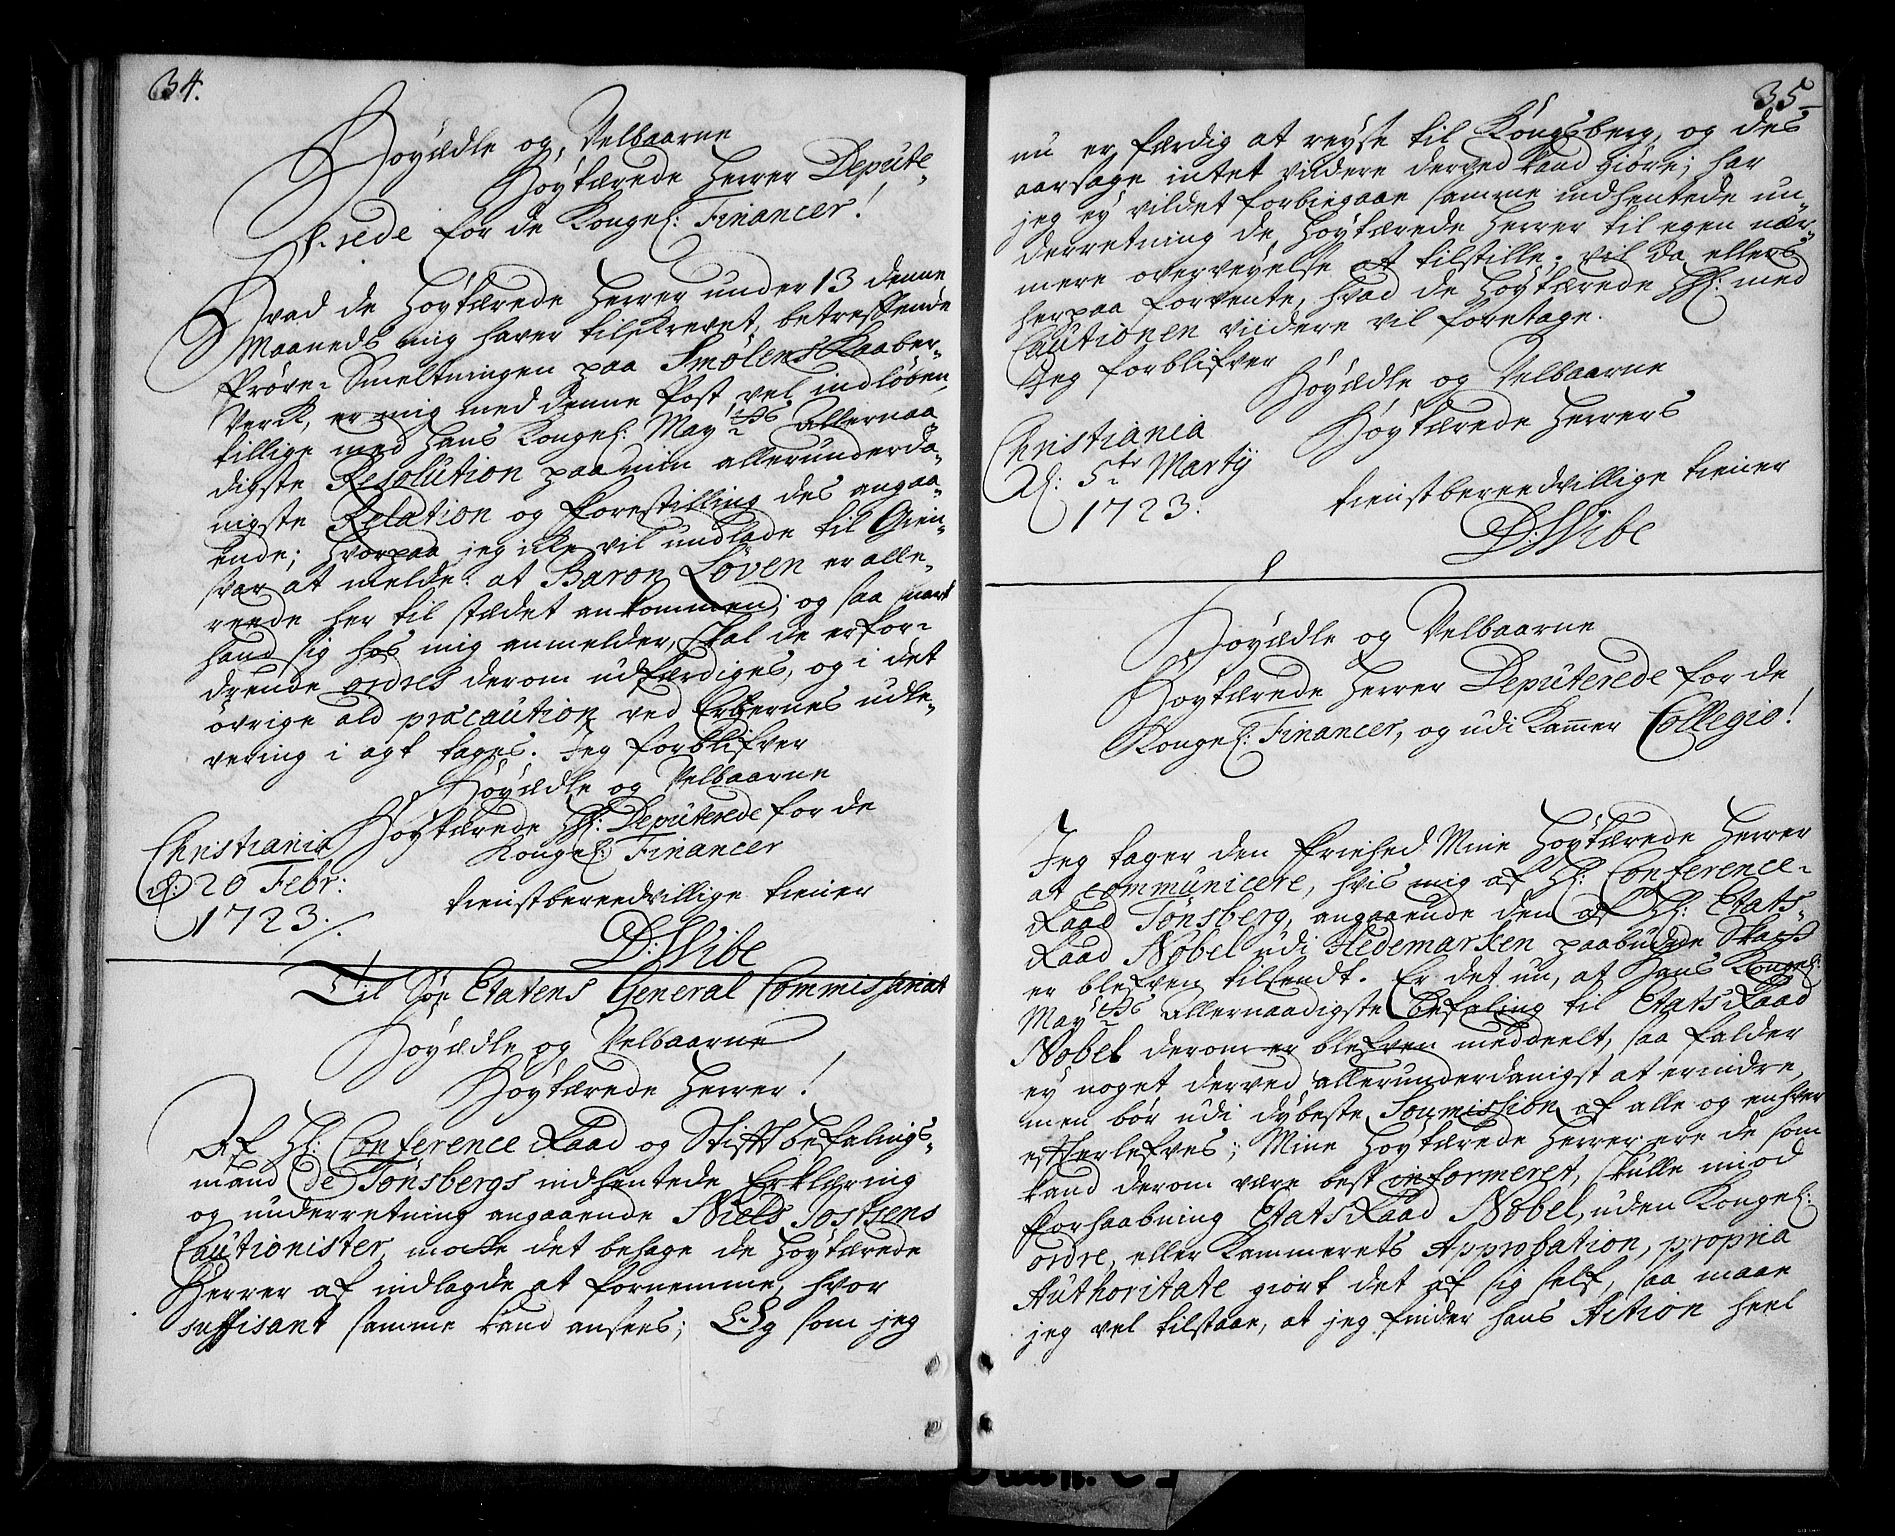 34.
Høyædle og Velbaarne
Høytærede Herrer Depute-
rede for de Kongel: Financer!
Hvad de Høytærede Herrer under 13 denne
Maaneds mig haver tilskrevet, betreffende
Prøve-Smeltningen paa Smölens Kaaber-
Verk, er mig med denne Post vel indløben,
tillige med Hans Kongel: Maytts Allernaa
digste Resolution paa min allerunderda-
nigste Relation og forestilling des angaa-
ende; hvorpaa jeg ikke vil undlade til Gien-
svar at melde: at Baron Löven er alle-
reede her til stædet ankommen; og saa snart
hand sig hos mig anmelder, skal de erfor-
drende ordres derom udfærdiges, og i det
øvrige ald præcaution ved Ertzernes udle-
vering i agt tages. Jeg forblifver
Høyædle og Velbaarne
Høytærede HHr: Deputerede for de
Kongel: Financer
Christiania
d: 20 Febr:
1723.
tienstbereedvillige tiener
D: Wibe
Til Søe Etatens General Commissariat
Høyædle og Velbaarne
Høytærede Herrer!
Af Hr: Conference Raad og Stiftbefalings-
mand de Tönsbergs indhentede Erklæring
og underretning angaaende Niels Tostsens
Cautionister, motte det behage de Høytærede
Herrer af indlagde at fornemme, hvor
suffisant samme kand ansees; Og som jeg
35
nu er færdig at reyse til Kongsberg, og des
aarsage intet viidere derved kand giøre; har
jeg ey vildet forbiegaae samme indhentede un-
derretning de Høytærede Herrer til egen nær-
mere overveyelse at tilstille; vil da ellers
herpaa forvente, hvad de Høytærede HHr: med
Cautionen viidere vil foretage.
Jeg forblifver
Høyædle og Velbaarne
Høytærede Herrers
Christiania
d: 5te Martij
1723.
tienstbereedvillige tiener
D: Wibe
Høyædle og Velbaarne
Høytærede Herrer Deputerede for de
Kongel: Financer, og udi Kammer Collegio!
Jeg tager den Friehed Mine Høytærede Herrer
at communicere, hvis mig af Hr: Conference-
Raad Tönsberg, angaaende den af Hr: Etats-
Raad Nobel udi Hedemarken paabudne Skatt
er blefven tilsendt. Er det nu, at Hans Kongel:
Maytts allernaadigste befaling til Etats Raad
Nobel derom er blefven meddeelt, saa falder
ey noget derved allerunderdanigst at erindre,
men bør udi dybeste Soumission af alle og enhver
efterlefves; Mine Høytærede Herrer ere de som
kand derom være best informeret, skulle imod
forhaabning Etats Raad Nobel, uden Kongel:
ordre, eller Kammerets Approbation, propria
Authoritate giort det af sig self, saa maae
jeg vel tilstaae, at jeg finder hans Action heel